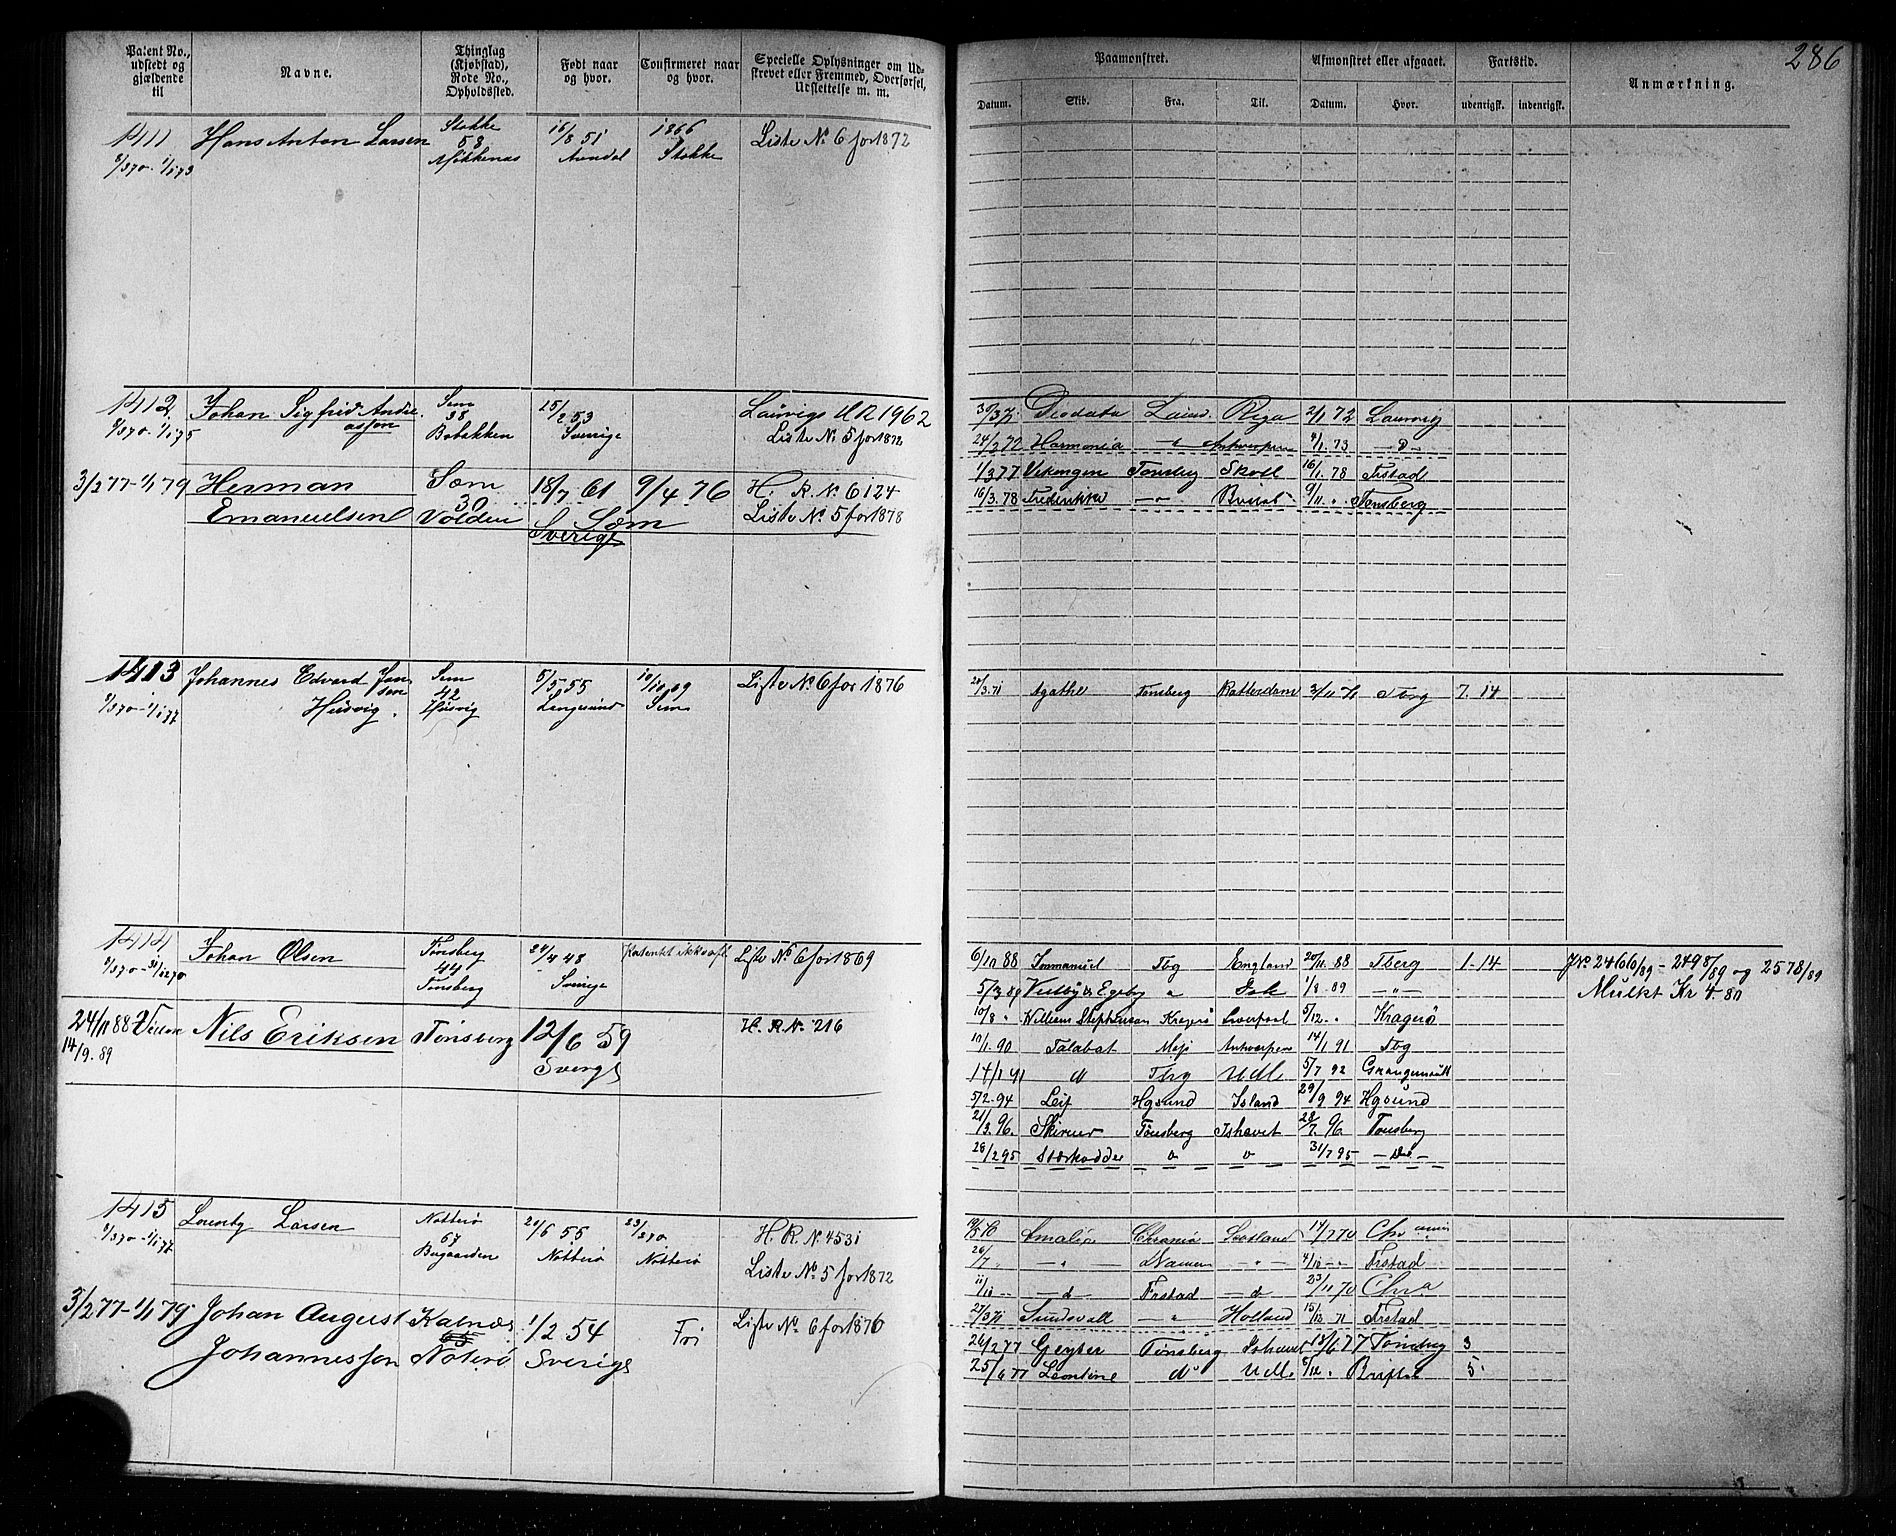 286
Patent No., udstedt og gjældende til
Navne.
Thinglag (Kjøbstad), Rode No., Opholdssted.
Født naar og hvor.
Confirmeret naar og hvor.
Specielle Oplysninger om Udskrevet eller Fremmed, Overførsel, Udslettelse m. m.
Paamønstret.
Datum. Skib. Fra. Til.
Afmønstret eller afgaaet.
Datum. Hvor.
Fartstid.
udenrigsk. indenrigsk.
Anmærkning.
1411 Hans Anton Larsen Stokke 16/8 51 1866 Liste No 6 for 1872
8/3 70 - 1/1 73 58 Arendal Stokke
1412 Johan Sigfrid Andreasson Sem 15/2 53 Laurvigs UR 1962
8/3 70 - 1/1 75 38 Sverige Liste No 5 for 1872
Bobakken
30/3 71 Deodata Laurv. Riga 2/1 72 Laurvig
24/2 72 Harmonia " Antwerpen 4/1 73 - D -
3/2 77 - 1/1 79 Herman Sæm 18/7 61 9/4 76 H. R. No 6124
Emanuelsen 30 Sverige Sæm Liste No 5 for 1878
Volden
1/3 77 Vikingen Tønsberg Skotl 16/1 78 Frstad
16/3 78 Fredrikke - " - Bristol 9/11 " Tønsberg
1413 Johannes Edvard Jansen Sem 5/5 55 10/10 69 Liste No 6 for 1876
8/3 70 - 1/1 77 Husvig. 42 Langesund Sem
Husvig
24/3 71 Agathe Tønsberg Rotterdam 3/11 71 Tbrg 7. 14
1414 Johan Olsen Tønsberg 24/4 48 Liste No 6 for 1869
8/3 70 - 31/12 70 44 Sverige
Tønsberg
24/11 88 Nils Eriksen Tønsberg 12/6 59 H. R. No 216
14/9. 89 Sverge
6/10 88 Immanuel Tbg England 20/11 88 Tberg 1-14 JNo 2466/89 - 2498/89 og 2578/89
5/3 89 " Ish 1/8 89 - " - Mulkt Kr 4.80
10/8 " William Stephenson Kragerø Liverpool 5/12 " Kragerø
10/1 90 Talabot Antwerpen 14/1 91 Tbg
14/1 91 d Tbrg UdL 5/7 92 Grangemouth
5/2 94 Leif Hgsund Island 29/9 94 Hgsund
21/3 96 Skirner Tønsberg Ishavet 28/7 96 Tønsberg
28/2 95 Stærkodder o o 31/7 95 - Do -
1415 Lorentz Larsen Nøtterø 20/6 55 23/3 70 H. R. No 4531
8/3 70 - 1/1 77 67 Nøtterø Nøtterø Liste No 5 for 1872
Bugaarden
19/5 70 Amalia Chrania Scotland 14/7 70 Chrania
26/7 - " - Dramen - " - 4/10 - " Frstad
11/10 - d - Frstad - d 23/11 70 Chra
27/3 71 Sundsvall - " - Holland 15/10 71 Frstad
3/2 77 - 1/1 79 Johan August Kalnæs 1/2 54 Fri Liste No 6 for 1876
Johannesson Nøterø Sverige
26/2 77 Geyser Tønsberg Ishavet 18/6 77 Tønsberg 3
25/6 77 Leontine d UdL 8/12 " Bristol 5